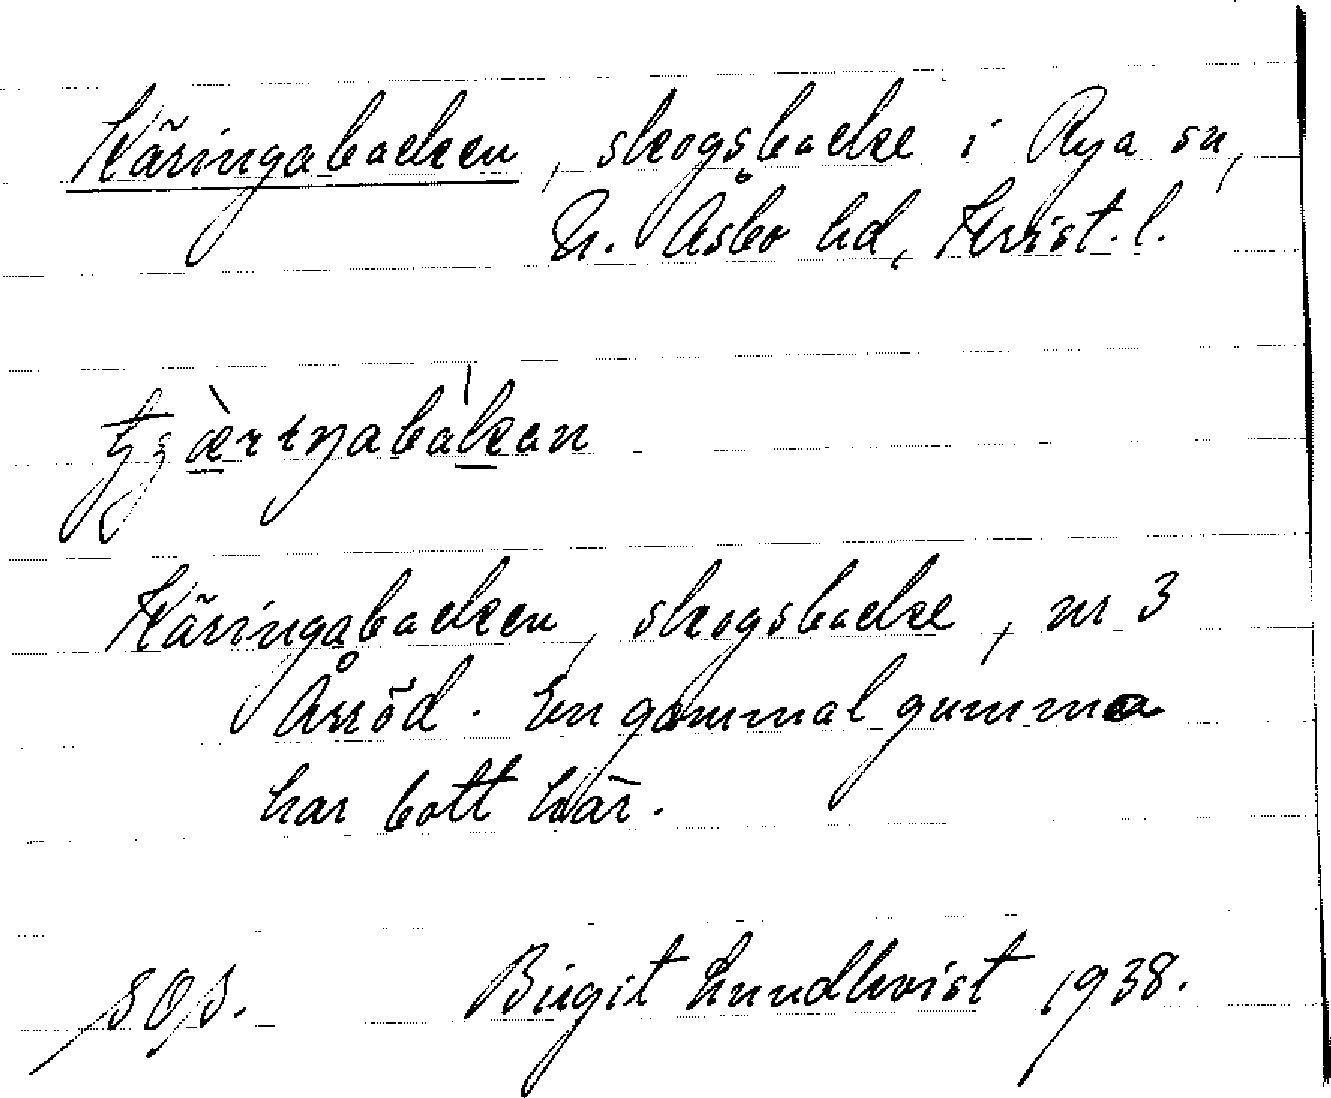 Käringabacken, skogsbacke i Rya sn,
N. Åsbo hd, Krist. l.
Käringabacken, skogsbacke, nr 3
Årröd. En gammal gumma
har bott här.
Birgit Lundkvist 1938.